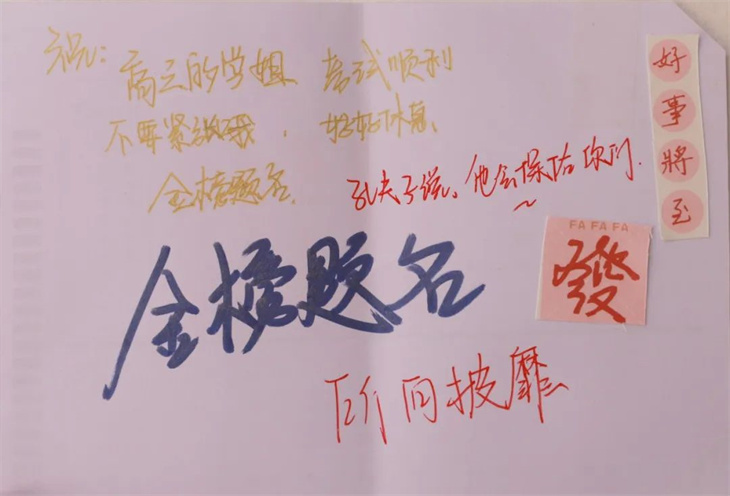 祝:
高三的学姐 考试顺利
不要紧张哦,好好休息、
金榜题名
孔夫子说,他会保佑你们.~
金榜题名
所向披靡
好事將至
FA FA FA
發